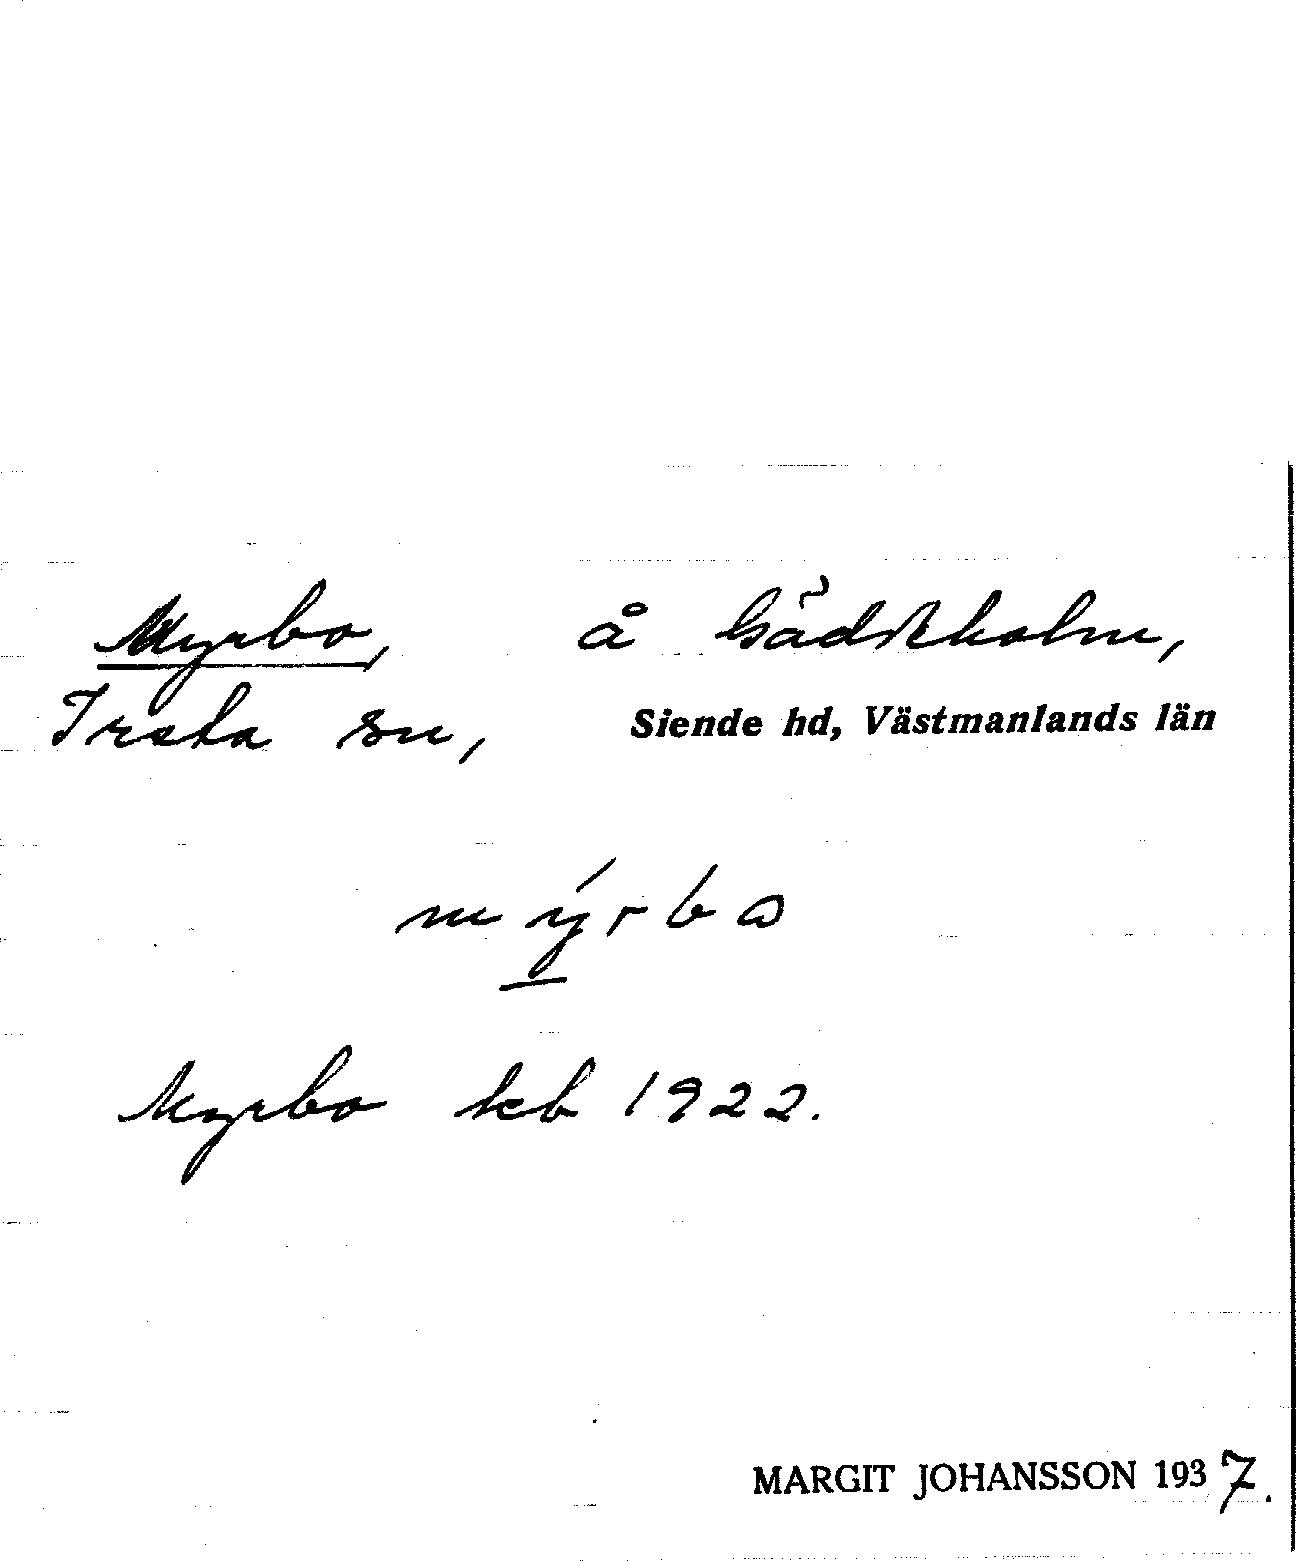 Myrbo, å Gädeholm,
Irsta sn, Siende hd, Västmanlands län
mýrbo
Myrbo kb 1922.
MARGIT JOHANSSON 1937.